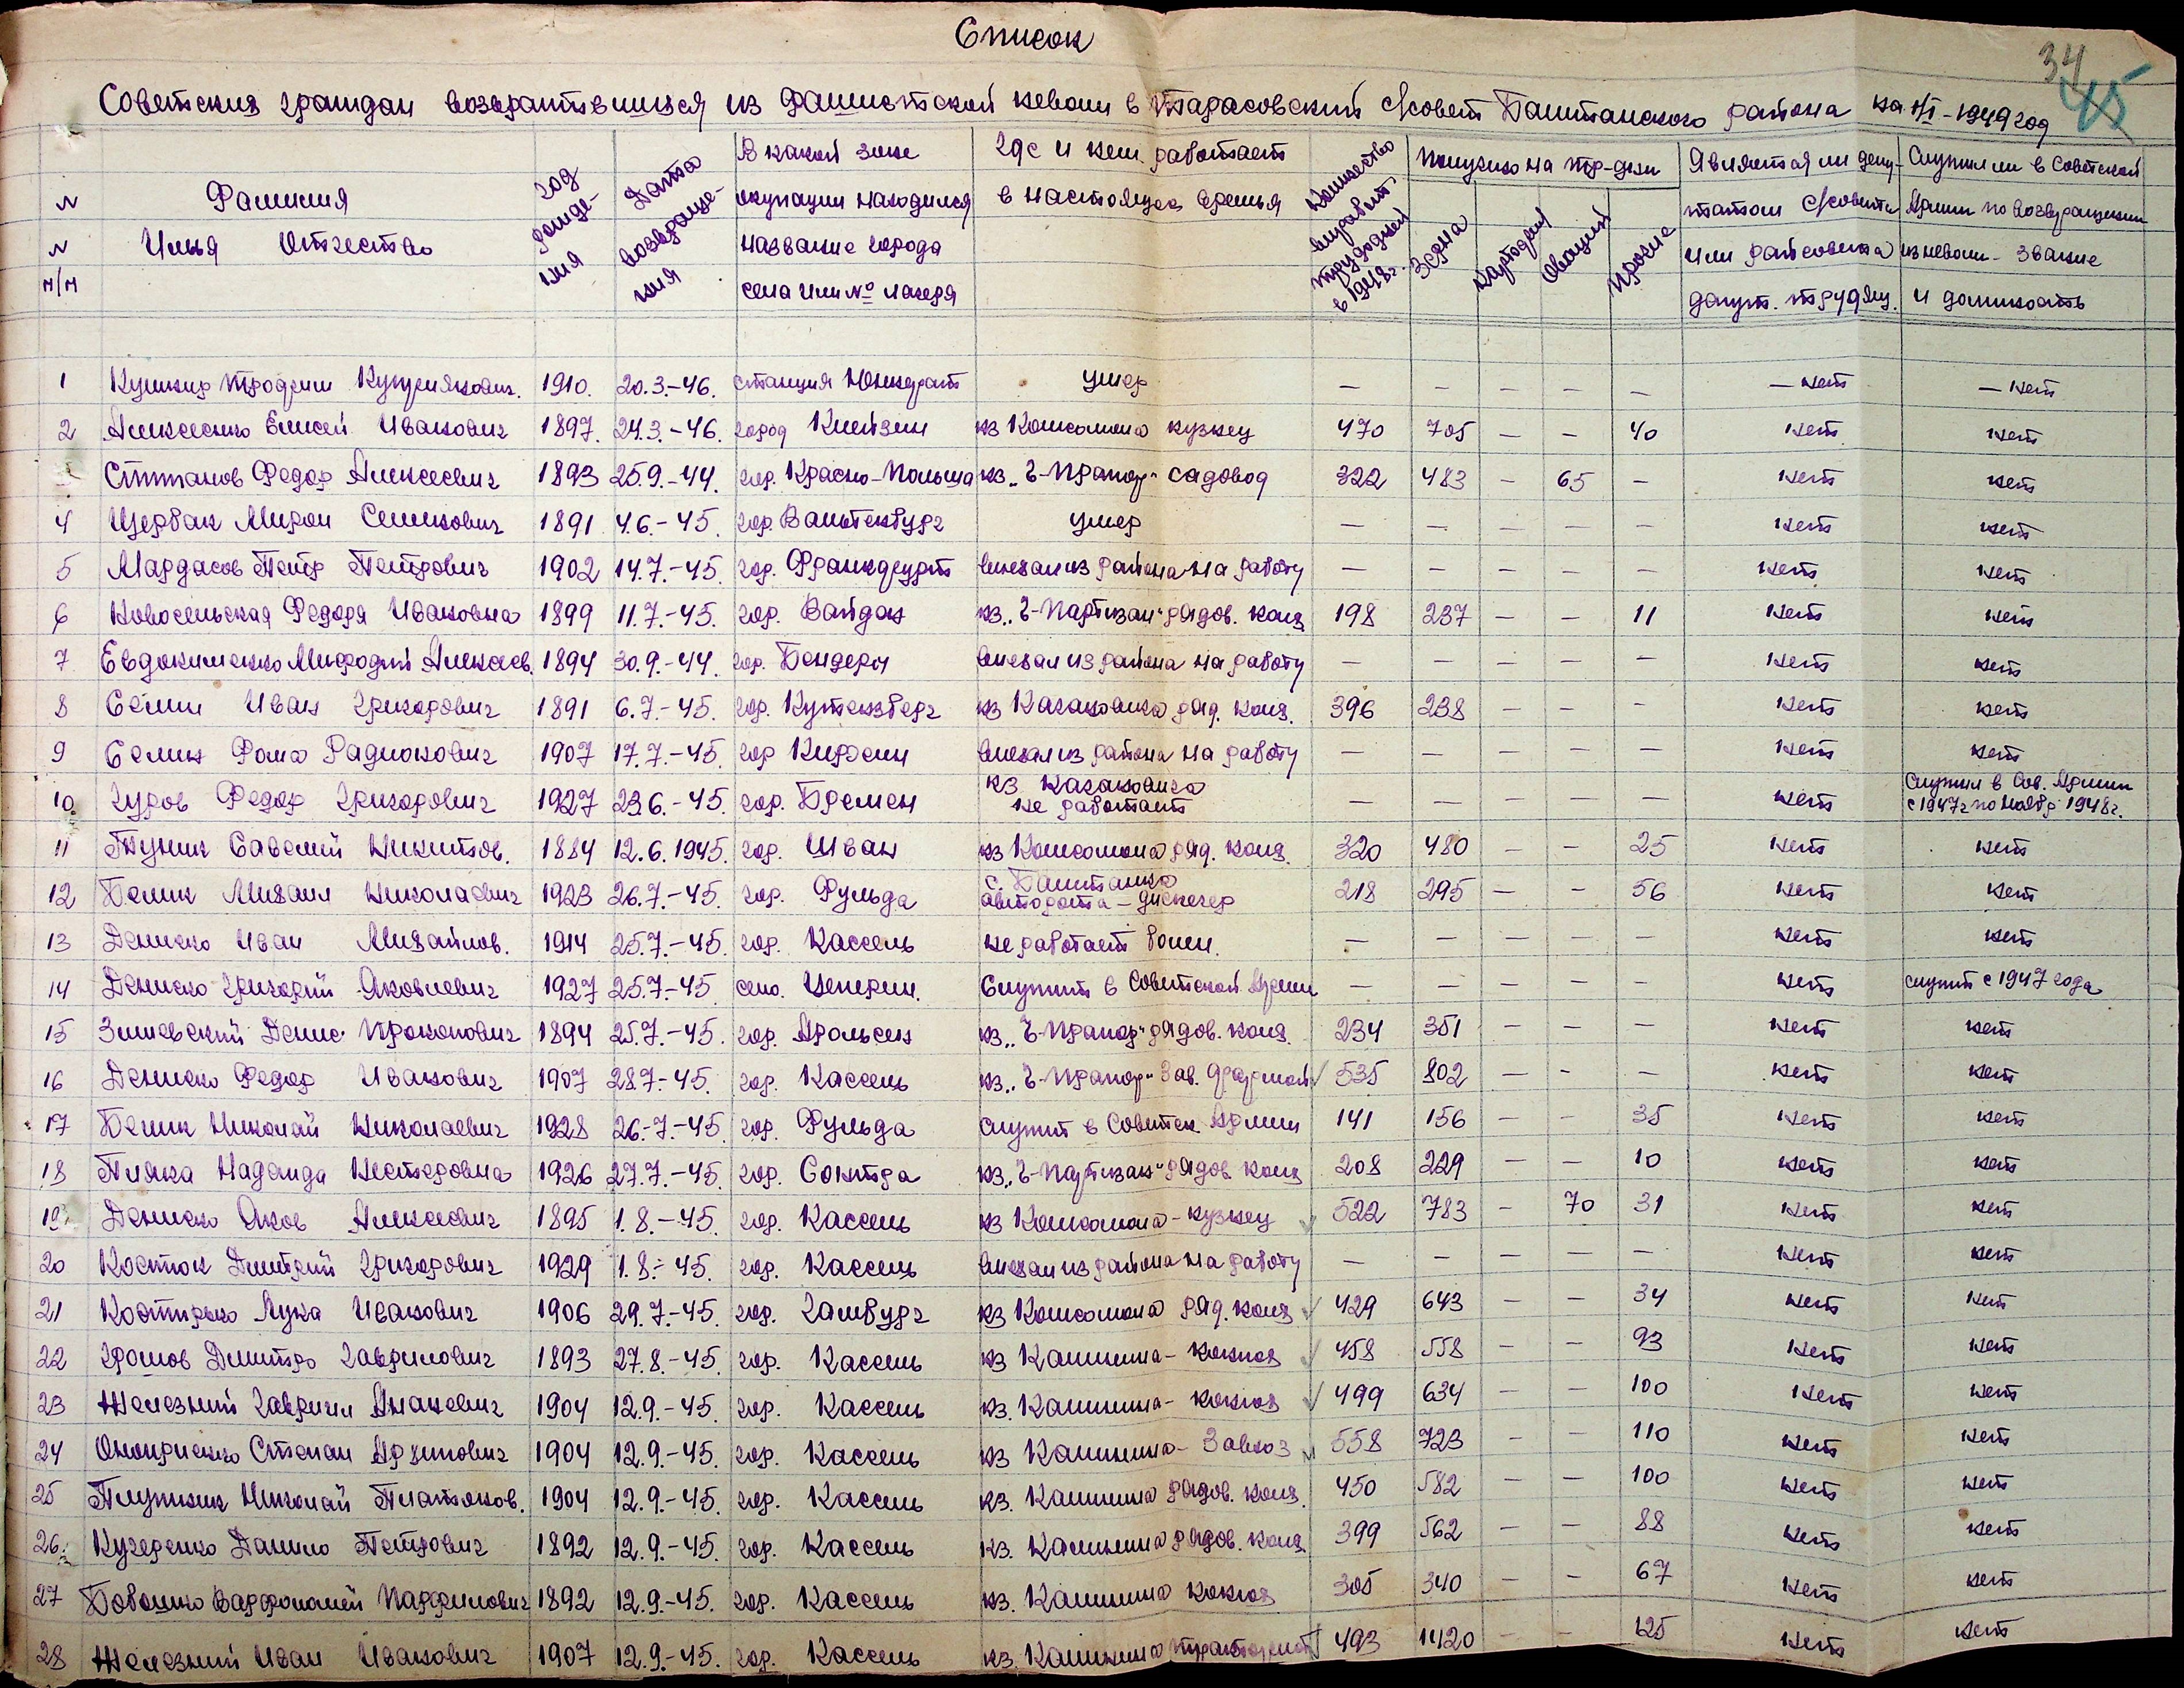 Список
34
45
Советския граждан возвратившися из фашистской неволи в Тарасовский с/совет Баштанского района на 1/I-1949 год
N N п/п
Фамилия Имя Отчество
Год рожде-ния
Дата возвраще-ния
В какой зоне окупации находился название города села или № лагеря
Где и кем работает в настоящее время
Количество выработ. трудодней в 1948 г.
Получено на тр-дни
Зерна
Картофля
Овощий
Прочие
Является ли депу-татом с/совета или райсовета депут. трудящ.
Служил ли в Советской Армии по возвращении из неволи - звание и должность
1 Кушнир Трофим Куприянович. 1910. 20.3.-46. станция умер — — — — — — нет — нет
2 Алексеенко Елисей Иванович 1897. 24.3.-46. город кз Комсомола кузнец 470 705 — — 40 нет нет
Степанов Федор Алексеевич 1893 25.9.-44. гор. Красно-Польша кз. "Ч-Прапор" садовод 322 483 - 65 - нет нет
4 Щербак Мирон Семенович 1891 4.6.-45. гор. умер — — — — — нет нет
5 Мардасов Петр Петрович 1902 14.7.-45. гор. Франкфурт выехал из района на работу — — — — — нет нет
6 Новосельская Федора Ивановна 1899 11.7.-45. гор. Вайдан кз. "Ч-Партизан" рядов. колх. 198 237 — — 11 нет нет
7 Евдокименко Мифодий Алексеев. 1894 30.9.-44. гор. Бендеры выехал из района на работу — — — — — нет нет
8 Селин Иван Григорович 1891 6.7.-45. гор. Кутензберг кз Казаковика ряд. колх. 396 238 - - - нет нет
9 Селин Фома Радионович 1907 17.7.-45. гор выехал из района на работу — — — — — нет нет
10 Гуров Федор Григорович 1927 23.6.-45. гор. Бремен кз. Казаковика не работает — — — — — нет Служил в Сов. Армии с 1947 г по ноябр 1948 г.
11 Тупик Савелий Никитов. 1884 12.6.1945. гор. Шван кз Комсомола ряд. колх. 320 480 — — 25 нет нет
12 Белик Михаил Николаевич 1923 26.7.-45. гор. Фульда с. Баштанка авторота - диспечер 218 295 — - 56 нет нет
13 Дениско Иван Михайлов. 1914 25.7.-45. гор. Кассель не работает болен. — — — — — нет нет
14 Дениско Григорий Яковлевич 1927 25.7.-45 село. Служит в Советской Армии — — — — — нет служит с 1947 года
15 Зишевский Денис Прокопович 1894 25.7.-45. гор. Арольсен кз. "Ч-Прапор" рядов. колх. 234 351 - - - нет нет
16 Дениско Федор Иванович 1907 28.7.-45. гор. Кассель кз. "Ч-Прапор" Зав. фермой 535 802 - - - нет нет
17 Белик Николай Николаевич 1928 26.-7.-45. гор. Фульда служит в Советск. Армии 141 156 - - 35 нет нет
18 Пляка Надежда Нестеровна 1926 27.7.-45. гор. Сонтра кз. "Ч-Партизан" рядов колх 208 229 — — 10 нет нет
19 Дениско Яков Алексеевич 1895 1.8.-45. гор. Кассель кз Комсомола - кузнец 522 783 - 70 31 нет нет
20 Костюк Дмитрий Григорович 1929 1.8.-45. гор. Кассель выехал из района на работу — — — — — нет нет
21 Костирько Лука Иванович 1906 29.7.-45. гор. Гамбург кз Комсомола ряд. колх 429 643 — — 34 нет нет
22 Громов Дмитро Гаврилович 1893 27.8.-45. гор. Кассель кз Калинина - конюх 458 558 — - 93 нет нет
23 Железний Гаврило Ананевич 1904 12.9.-45. гор. Кассель кз. Калинина - конюх 499 634 — — 100 нет нет
24 Оноприенко Степан Архипович 1904 12.9.-45. гор. Кассель кз Калинина - Завхоз 558 723 — — 110 нет нет
25 Плужник Николай Платонов. 1904 12.9.-45. гор. Кассель кз. Калинина рядов. колх. 450 582 - — 100 нет нет
26. Кучеренко Данило Петрович 1892 12.9.-45. гор. Кассель кз. Калинина рядов. колх. 399 562 — — 88 нет нет
27 Бовошко Варфоломей Парфилович 1892 12.9.-45. гор. Кассель кз. Калинина конюх 305 340 - — 67 нет нет
28 Железний Иван Иванович 1907 12.9.-45. гор. Кассель кз. Калинина тракторист 493 1420 — - 125 нет нет